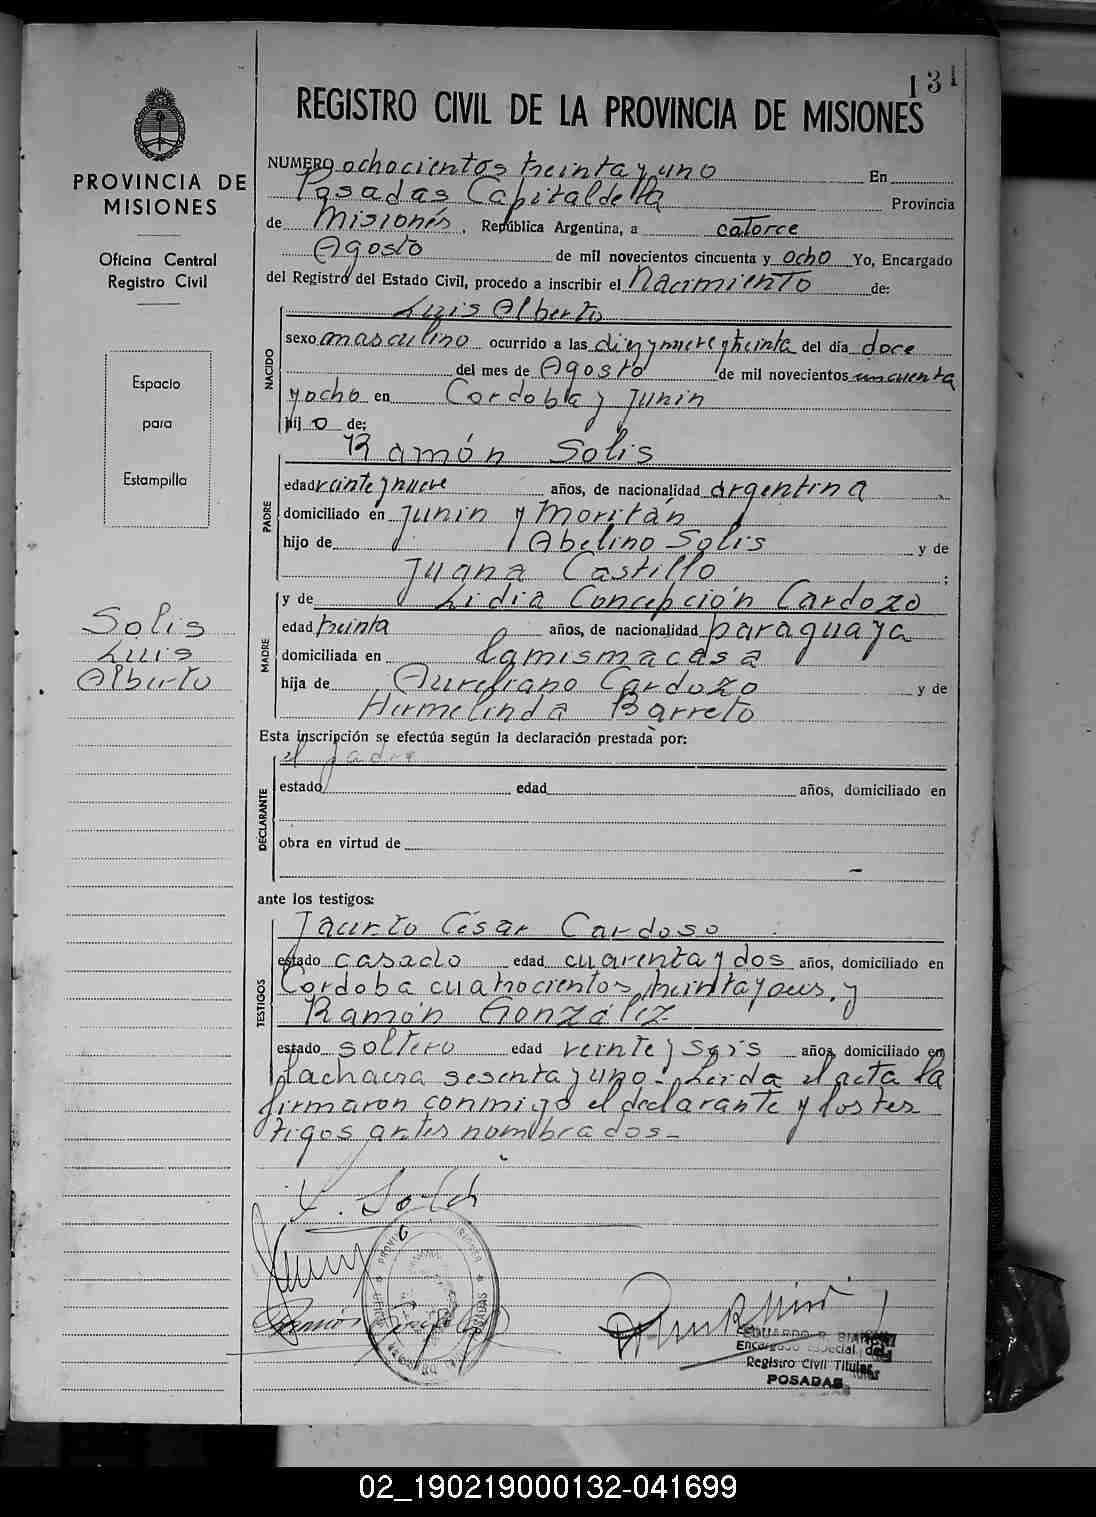 131
REGISTRO CIVIL DE LA PROVINCIA DE MISIONES
PROVINCIA DE
MISIONES
Oficina Central
Registro Civil
Espacio
para
Estampilla
Solis
Luis
Alberto
NUMERO ochocientos treinta y uno En
Posadas Capital de la Provincia
de Misiones, República Argentina, a catorce
Agosto de mil novecientos cincuenta y ocho Yo, Encargado
del Registro del Estado Civil, procedo a inscribir el Nacimiento de:
NACIDO
Luis Alberto
sexo masculino ocurrido a las diez y nueve y treinta del día doce
del mes de Agosto de mil novecientos cincuenta
y ocho en Cordoba y Junin
hijo de:
Ramón Solis
PADRE
edad veinte y nueve años, de nacionalidad argentina
domiciliado en Junin y Moritán
hijo de Abelino Solis y de
Juana Castillo;
y de Lidia Concepción Cardozo
MADRE
edad treinta años, de nacionalidad paraguaya
domiciliada en la misma casa
hija de Aureliano Cardozo y de
Hermelinda Barreto
Esta inscripción se efectúa según la declaración prestada por:
el padre
DECLARANTE
estado edad años, domiciliado en
obra en virtud de
ante los testigos:
TESTIGOS
Jacinto César Cardoso
estado casado edad cuarenta y dos años, domiciliado en
Cordoba cuatrocientos treinta y y
Ramón González
estado soltero edad veinte y seis años, domiciliado en
sesenta y uno. Leida el acta la
firmaron conmigo el declarante y los tes
tigos antes nombrados.
EDUARDO R.
Encargado Especial del
Registro Civil Titular
POSADAS
02_190219000132-041699